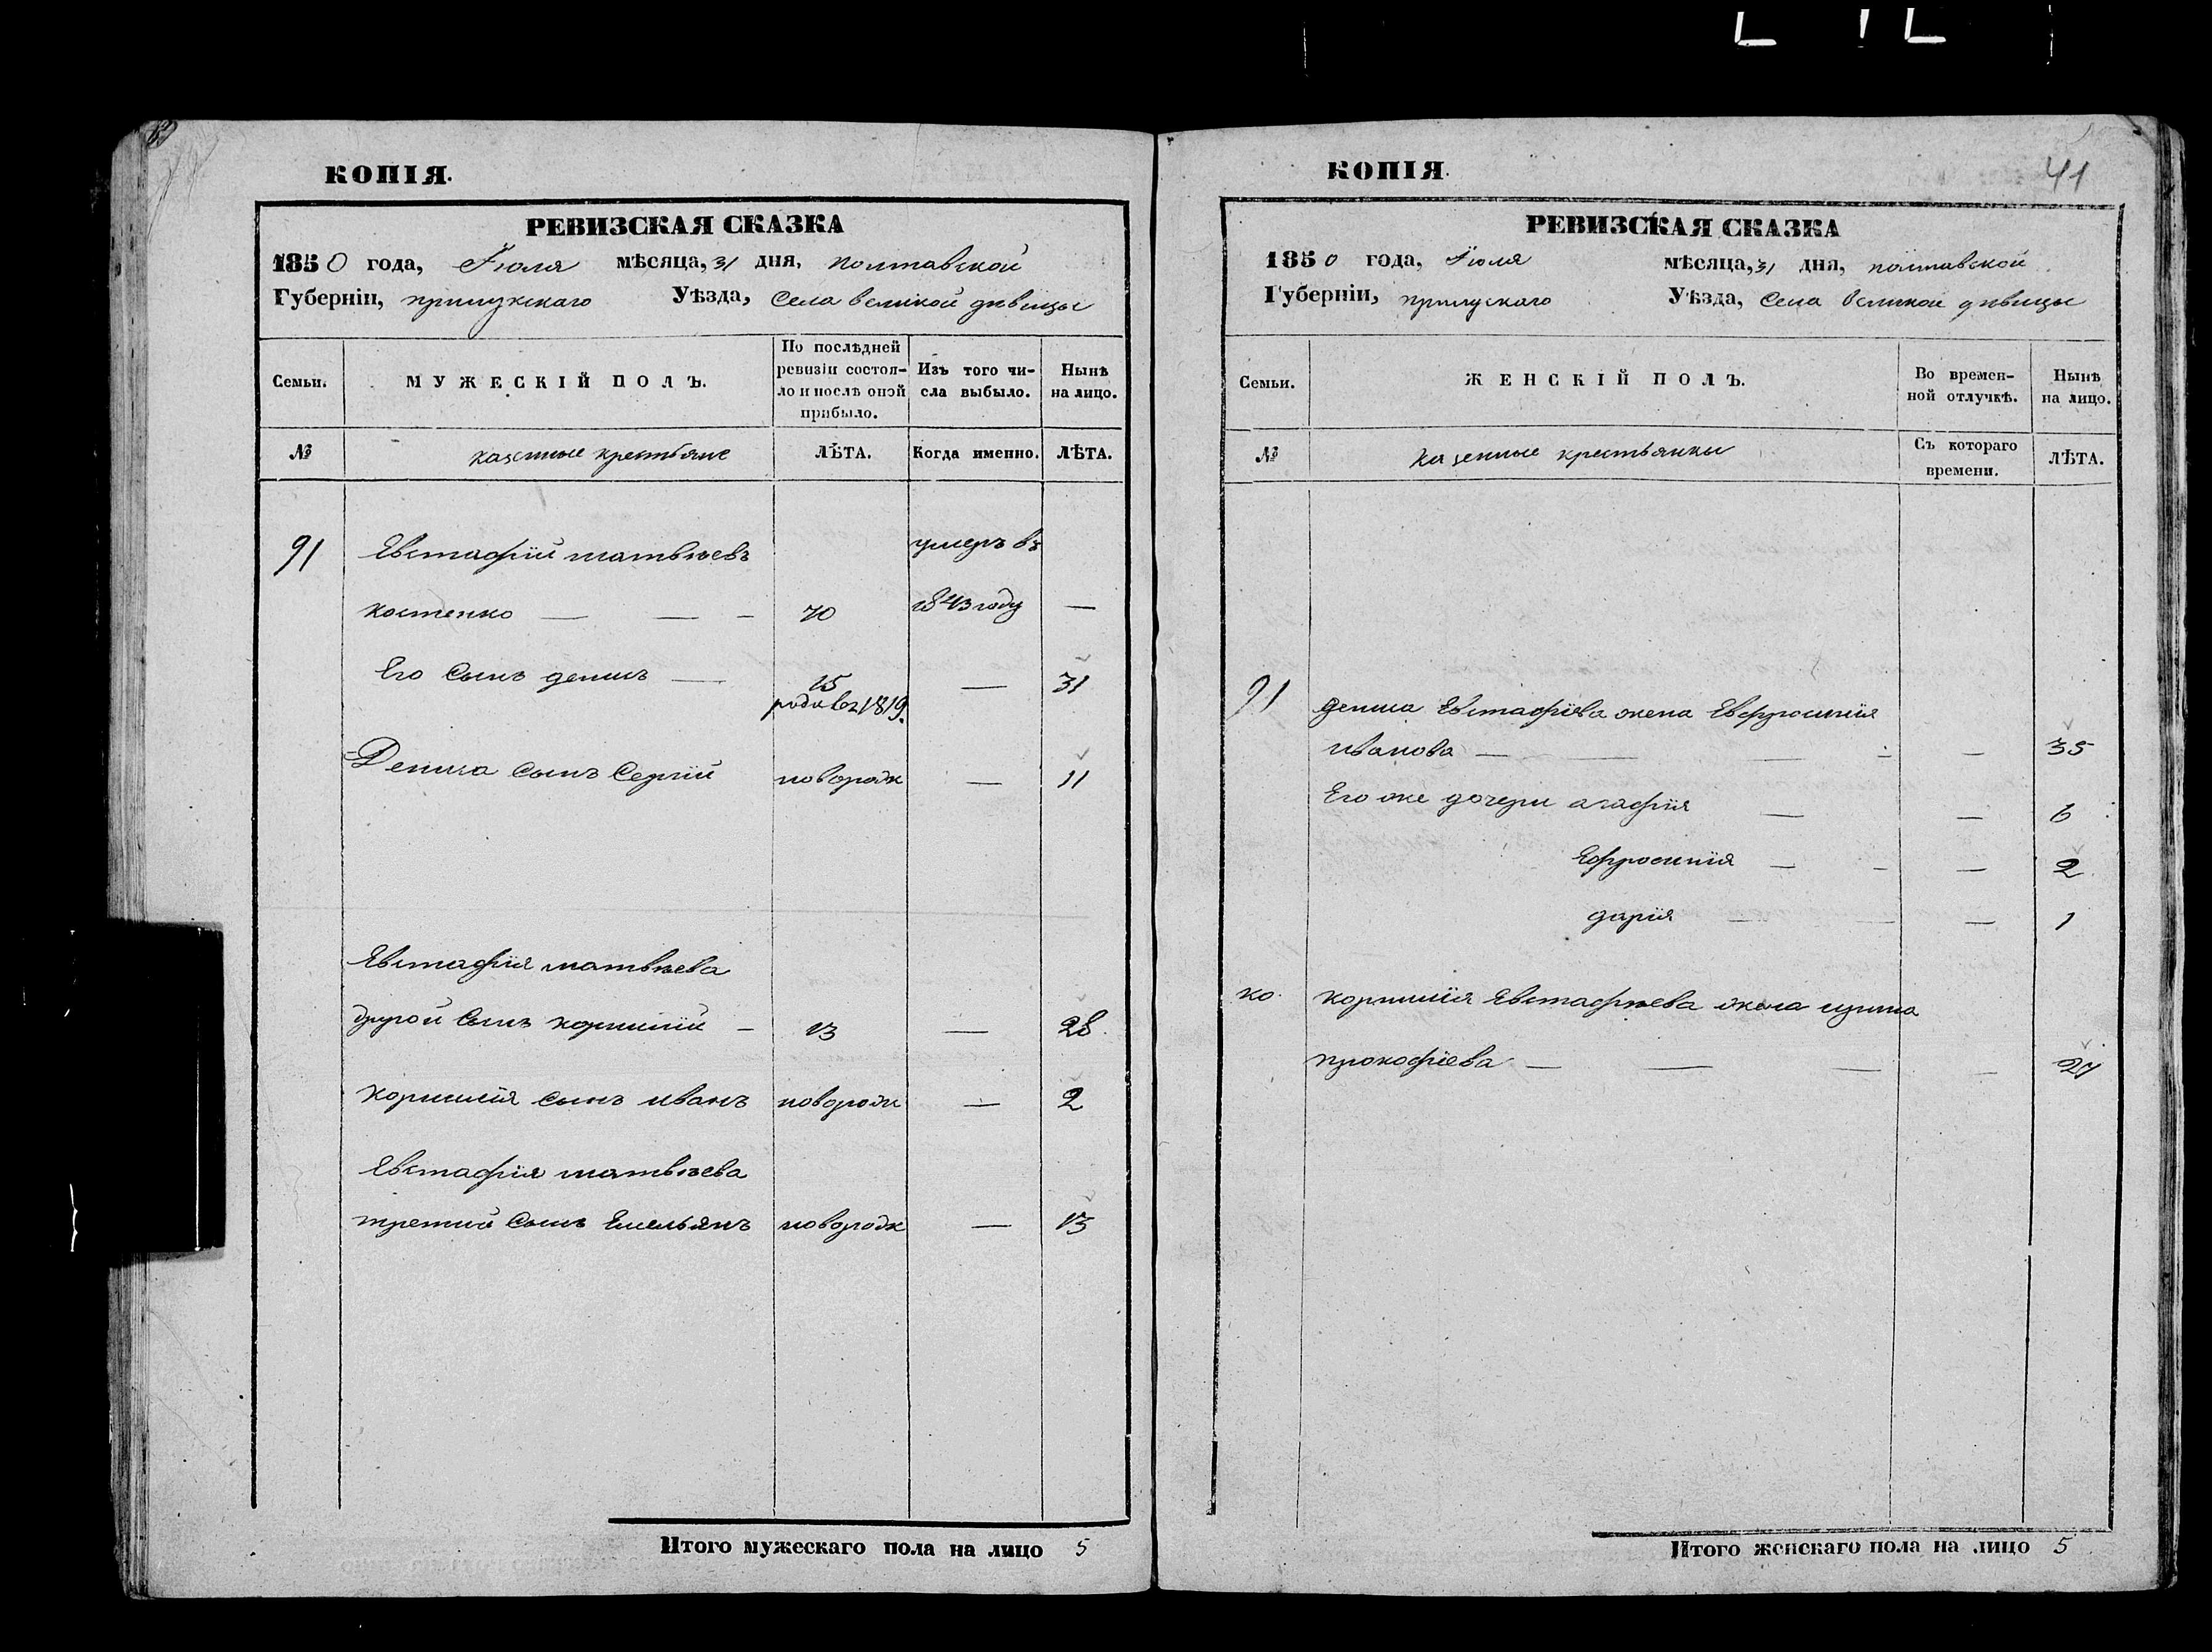 КОПІЯ.
РЕВИЗСКАЯ СКАЗКА
1850 года, Іюля мѣсяца, 31 дня, полтавской
Губерніи, прилукскаго Уѣзда, Села великой дѣвицы
Семьи.
МУЖЕСКІЙ ПОЛЪ.
По послѣдней ревизіи состоя-
ло и послѣ оной прибыло.
Изъ того чи-
сла выбыло.
Нынѣ
на лицо.
№
казенные крестьяне
ЛѢТА.
Когда именно.
ЛѢТА.
91 Евстафій матвѣевъ умеръ въ
костенко — — — 70 1843 году —
Его Сынъ денисъ — 15 — 31
родивъ 1819.
Дениса Сынъ Сергій новорожд — 11
Евстафія матвѣева
другой Сынъ корнилій — 13 — 28
корнилія Сынъ иванъ новорожд — 2
Евстафія матвѣева
третий Сынъ Емельянъ новорожд — 13
Итого мужескаго пола на лицо 5
41
КОПІЯ.
РЕВИЗСКАЯ СКАЗКА
1850 года, Іюля мѣсяца, 31 дня, полтавской
Губерніи, прилускаго Уѣзда, Села великой дѣвицы
Семьи.
ЖЕНСКІЙ ПОЛЪ.
Во времен-
ной отлучкѣ.
Нынѣ
на лицо.
№
казенные крестьянки
Съ котораго
времени.
ЛѢТА.
91 дениса Евстафіева жена Евфросинія
иванова — — — — — 35
Его же дочери агафія — — 6
Ефросинія — — — 2
дарія — — — 1
ко. корнилія Евстафіева жена ирина
прокофіева — — — — 27
Итого женскаго пола на лицо 5